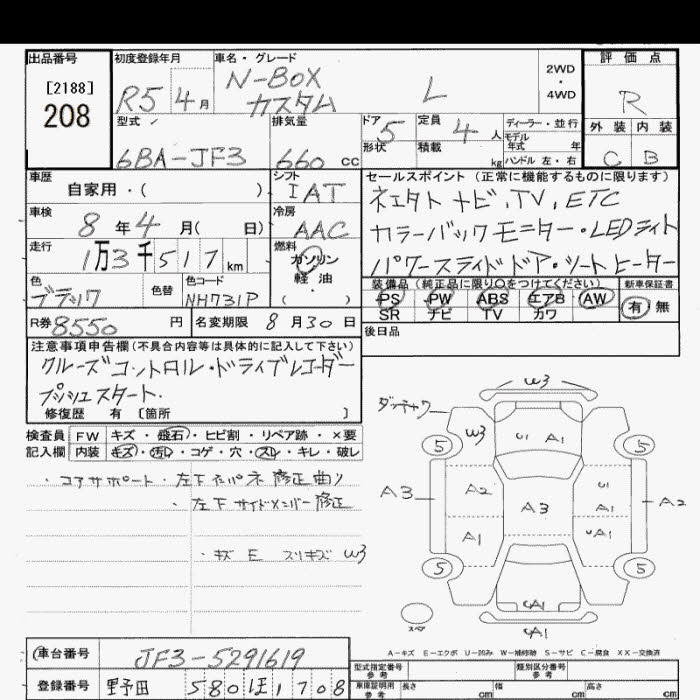 出品番号 初度登録年月 車名・グレード 評価点
[2188]
208
R5 4月
N-BOX
カスタム L
2WD
・
4WD
R
型式 排気量 ドア 定員 ディーラー・並行 外装 内装
6BA-JF3 660 cc 5 4 人
形状 積載 kg
モデル
年式 年
ハンドル 左・右
C B
車歴 シフト セールスポイント(正常に機能するものに限ります)
自家用・( ) IAT
車検 冷房
8年4月( 日) AAC
ナビ、TV、ETC
カラーバックモニター・LEDライト
パワースライドドア・シートヒーター
走行 燃料
1万3千517km ガソリン
軽油
( ・ )
色 色替 色コード
ブラック NH731P
装備品(純正品に限り○をつけてください) 新車保証書
PS PW ABS エアB AW 有 無
SR ナビ TV カワ
R券 8550円 名変期限 8月30日
後日品
注意事項申告欄(不具合内容等は具体的に記入して下さい)
クルーズコントロール・ドライブレコーダー
プッシュスタート・
修復歴 有 〔箇所 〕
検査員 FW キズ・飛石・ヒビ割・リペア跡・×要
記入欄 内装 キズ・汚レ・コゲ・穴・スレ・キレ・破レ
・コアサポート・左下 修正 曲り
・左下サイドメンバー修正
・キズ E スリキズ W3
W3
W3 U1 A1
5 5
A3 A2 A3 U1 A1 A2
A1 UA1
5 5
スペア
A-キズ E-エクボ U-凹み W-補修跡 S-サビ C-腐食 XX-交換済
車台番号 JF3-5291619
型式指定番号
参考
類別区分番号
参考
登録番号 野田 580 ほ 1708
車庫証明用
参考
長さ cm 幅 cm 高さ cm